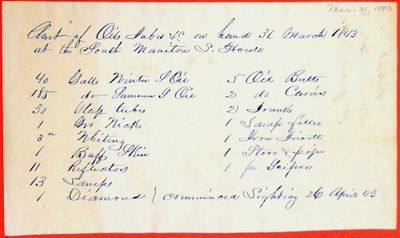 Mar. 31, 1843
Amt of Oils Tubes &c on hand 31 March 1843
at the South Manitou L. House
40 Galls Winter S Oil
185 do Summer S Oil
50 Glass tubes
1 Gro Wick
3 lb Whiting
1 Buff Skin
11 Reflectors
13 Lamps
1 Diamond
5 Oil Butts
2 do Carriers
2 Trunk
1 Lamp filler
1 Iron
1 Stove & pipe
1 pr Scissors
commenced Lighting 26 April 43